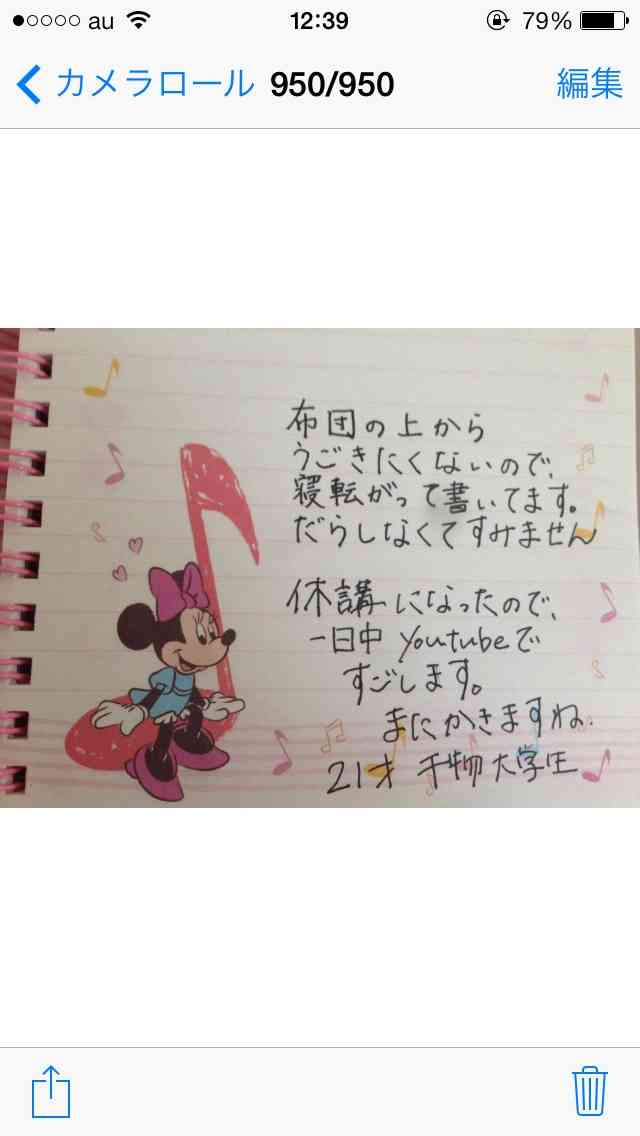 au 12:39 79%
カメラロール 950/950 編集
布団の上から
うごきたくないので、
寝転がって書いてます。
だらしなくてすみません
休講になったので、
一日中 youtubeで
すごします。
まにかきますね.
21才 干物大学生